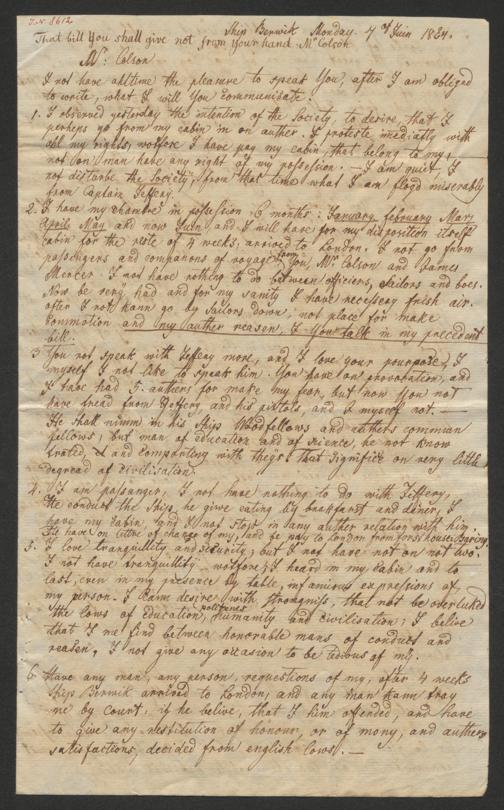 J.N. 8612
Ship Berwick Monday 7 of Juin 1824.
That bill You shall give not from Your hand Mr Colson
Mr: Colson
I not have alltime the pleasure to speak You, after I am obliged
to write, what I will You communicate.
1. I observed yesterday the intention of the Society, to desire, that I
perhaps go from my cabin in on auther. I proteste imediatly with
all my rights, wofore I have pay my cabin, that belong to my
not on man have any right of my possession. — I am quit, I
not disturbe the Society, from that time what I am floged miserably
from Captain Jeffery.
2. I have my chambre in possession 6 months: January, february, Mar;
Aprile, May and now Juin, and I will have for my disposition itself
cabin for the rste of 4 weeks, arrived to London. I not go from
passengers and companons of voyage from You, Mr. Colson and James
Mercer. I not have nothing to do between officiers, sailors and boes.
Now be very had and for my sanity I have necessery frish air.
after I not kann go by sailors down, not place for make
commotion and my auther reason, I You talk in my precedent
bill.
3 You not speak with Jeffery more, and I love your pourpose, I
myself I not like to speak him. You have on provocation, and
I thoe had 5. authers for make my fear, but now You not
have dread from Jeffery and his pistols, and I myself not. —
He shall in his ships and authers common
fellows, but man of education and of science, he not know
trated, and comporting with theyr. That Significe on very little
degread of civilisation.
4. I am passanger, I not have nothing to do with Jeffery,
He conduct the ship, he give eating by breakfast and diner, I
have my cabin, and I not stose in any auther relation with him
He have on lettre of change of my, and be pay to London from first house Baring.
5. I love tranquillety and security, but I not have not on not two.
I not have tranquillety — wofore, I heard in my cabin and to
last, even in my presence by table, infamious expressions of
my person. I kann desire with strongniss, that not be overlukd
the lows of education, politines humanity and civilisation; I belive
that I me find between honorable mans of conduct and
reason, I not give any occasion to be tedious of my.
6. Have any man, any person, requestions of my, after 4 weeks
Ship Berwik arrived to London, and any man kann tray
me by court, if he belive, that I him offended, and have
to give any restitution of honour, or of mony, and authers
satisfactions, decided from english lows. —